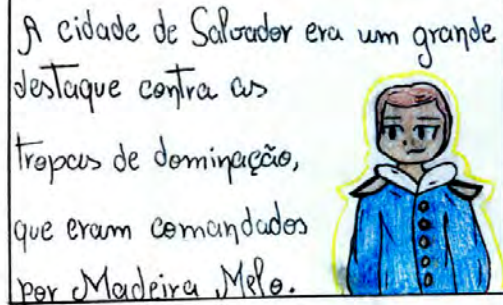 A cidade de Salvador era um grande
destaque contra as
tropas de dominação,
que eram comandados
por Madeira Melo.